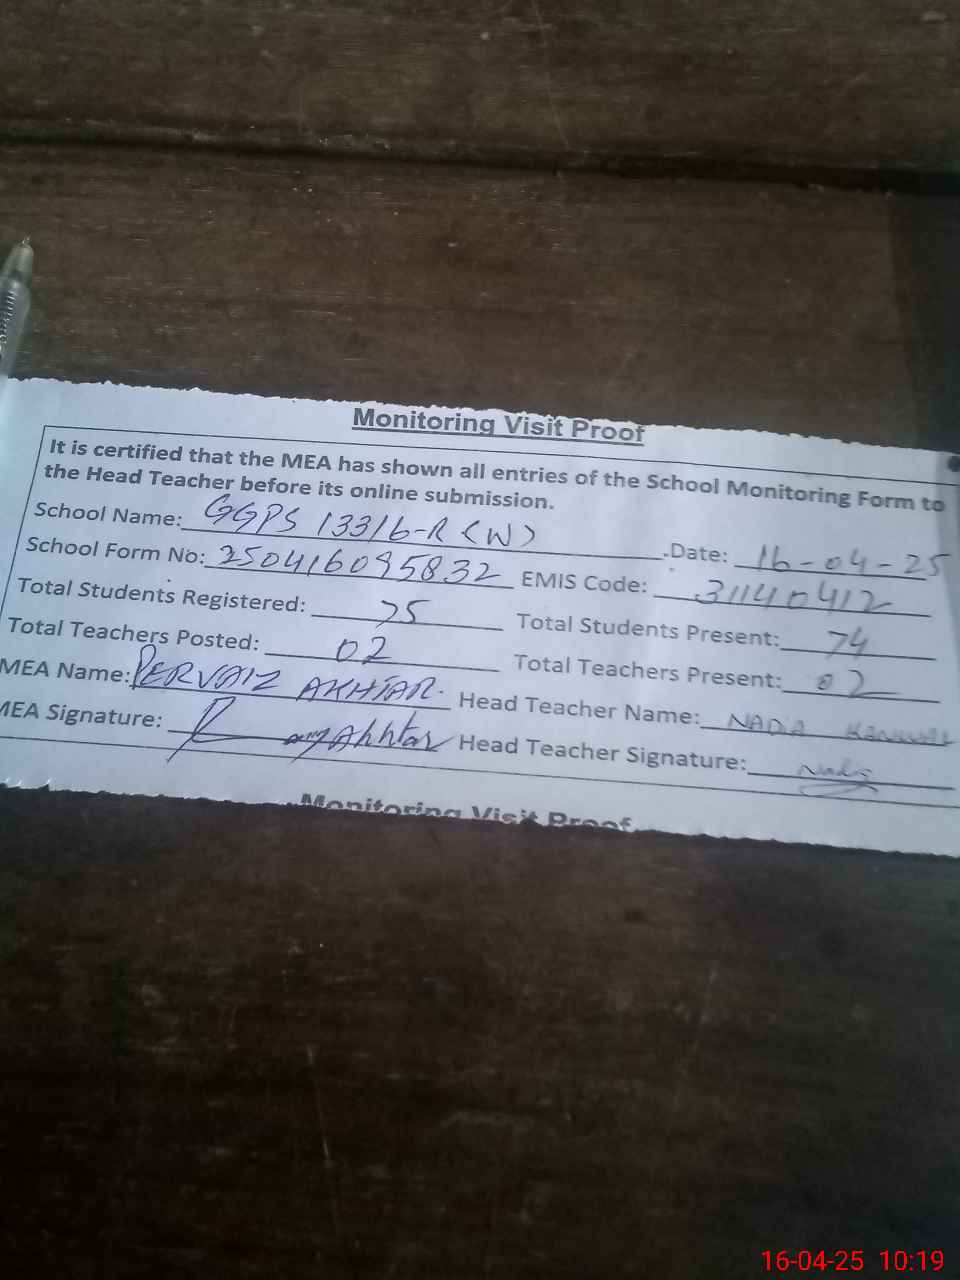 Monitoring Visit Proof
It is certified that the MEA has shown all entries of the School Monitoring Form to
the Head Teacher before its online submission.
School Name: GGPS 133/6-R (W) .Date: 16-04-25
School Form No: 250416095832 EMIS Code: 31140412
Total Students Registered: 75 Total Students Present: 74
Total Teachers Posted: 02 Total Teachers Present: 02
MEA Name: PERVAIZ AKHTAR. Head Teacher Name: NADIA KANWAL
MEA Signature: Akhtar Head Teacher Signature:
Monitoring Visit Proof
16-04-25 10:19